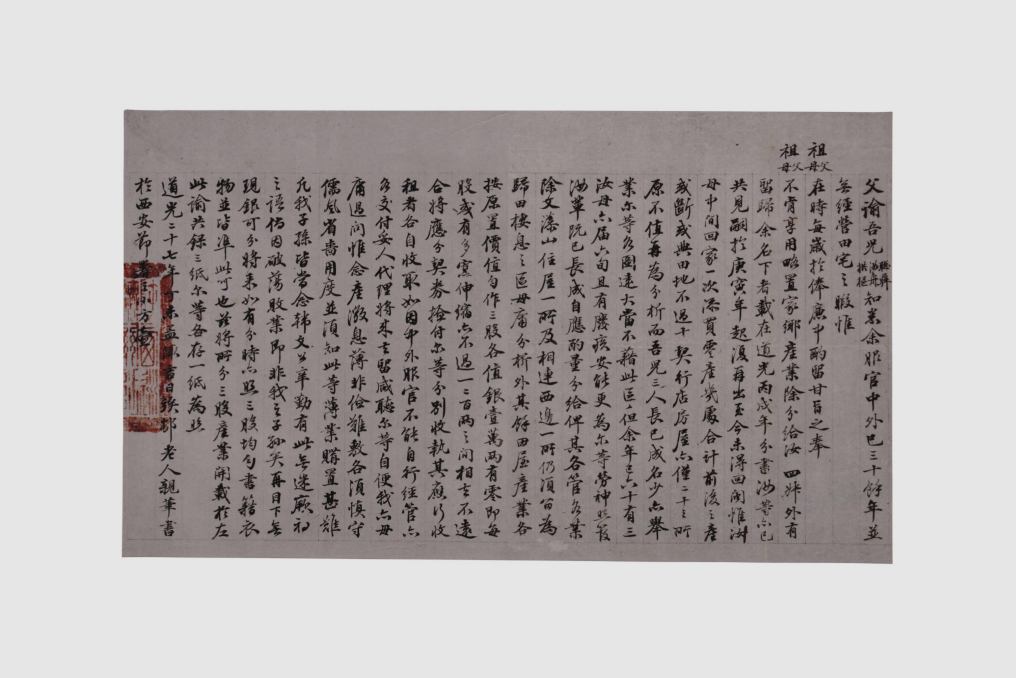 父諭吾兒聰彝汝舟拱樞知悉余服官中外已三十餘年並
無經營田宅之暇惟
祖父母在時每歲於俸廉中酌留甘旨之奉
祖父母不肯享用略置家鄉產業除分給汝四叔外有
留歸余名下者載在道光丙戌年分書汝等亦已
共見嗣於庚寅年起復再出至今未得回閩惟汝
母中間回家一次添買零產幾處合計前後之產
或斷或典田地不過十契行店房屋亦僅二十三所
原不值再為分析而吾兒三人長已成名少亦舉
業尔等各圖遠大當不藉此區區但余年已六十有三
汝母亦屆六旬且有廢疾安能更為尔等勞神照管
汝輩既已長成自應酌量分給俾其各管各業
除文藻山住屋一所及相連西邊一所仍須留為
歸田棲息之區毋庸分析外其餘田屋產業各
按原置價值勻作三股各值銀壹萬兩有零即每
股或有多寡伸縮亦不過一二百兩之間相去不遠
合將應分契券撿付尔等分別收執其應行收
租者各自收取如因中外服官不能自行經管亦
各交付妥人代理將來去留咸聽尔等自便我亦毋
庸過問惟念產微息薄非儉難敷各須慎守
儒風省嗇用度並須知此等薄業購置甚難
凡我子孫皆當念韓文公辛勤有此無迷厥初
之語倘因破蕩敗業即非我之子孫矣再目下無
現銀可分將來如有分時亦照三股均勻書籍衣
物並皆準此可也茲將所分三股產業開載於左
此諭共錄三紙尔等各存一紙為照
道光二十七年丁未孟陬吉日竢邨老人親筆書
於西安節署之小方壺